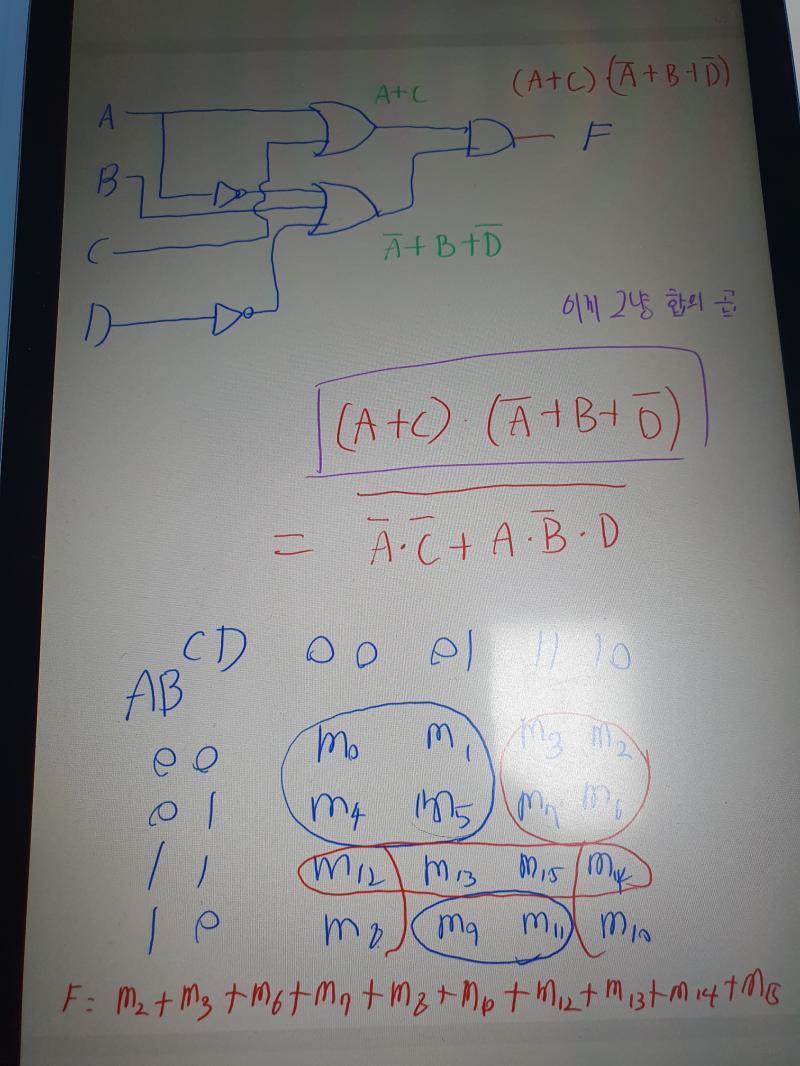 (A+C) (A̅+B+D̅)
A+C
A
F
B
C
A̅+B+D̅
D
이게 그냥 합의 곱
(A+C)·(A̅+B+D̅)
= \overline{A̅·C̅+A·B̅·D}
CD 00 01 11 10
AB
00 m₀ m₁ m₃ m₂
01 m₄ m₅ m₇ m₆
11 m₁₂ m₁₃ m₁₅ m₁₄
10 m₈ m₉ m₁₁ m₁₀
F= m₂+m₃+m₆+m₇+m₈+m₁₀+m₁₂+m₁₃+m₁₄+m₁₅